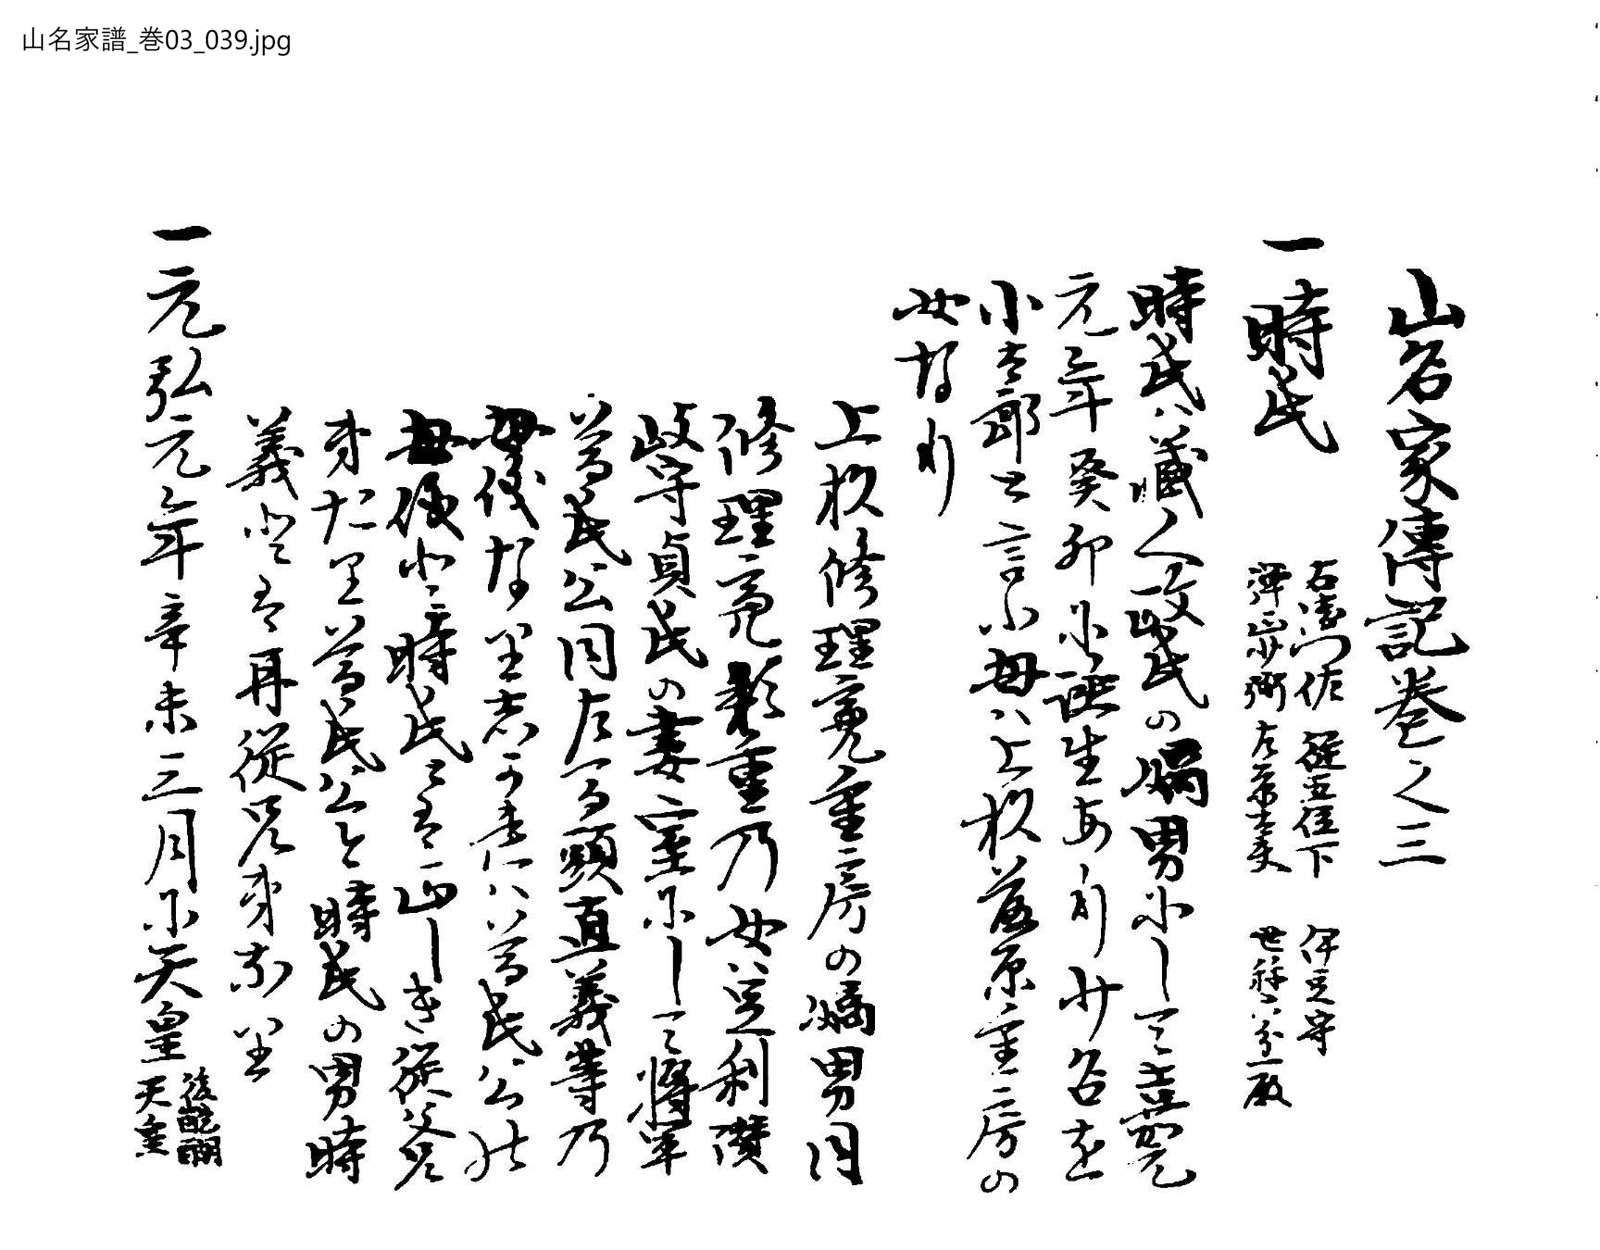 山名家譜_巻03_039.jpg
山名家傳記巻之三
一時氏
右衛門佐 従五位下 伊豆守
弾正少弼 左京大夫 世称六分一殿
時氏ハ蔵人政氏の嫡男にして嘉元
元年癸卯に誕生あり小名を
小太郎と言ふ母ハ上杉藤原重房の
女なり
上杉修理亮重房の嫡男同
修理亮頼重乃女ハ足利讃
岐守貞氏の妻室にして将軍
尊氏公同左馬頭直義等乃
母儀なり志かれハ尊氏公の
母儀と時氏とハ正しき従父
弟たり尊氏公と時氏の男時
義とハ再従兄弟なり
一元弘元年辛未三月に天皇
後醍醐
天皇